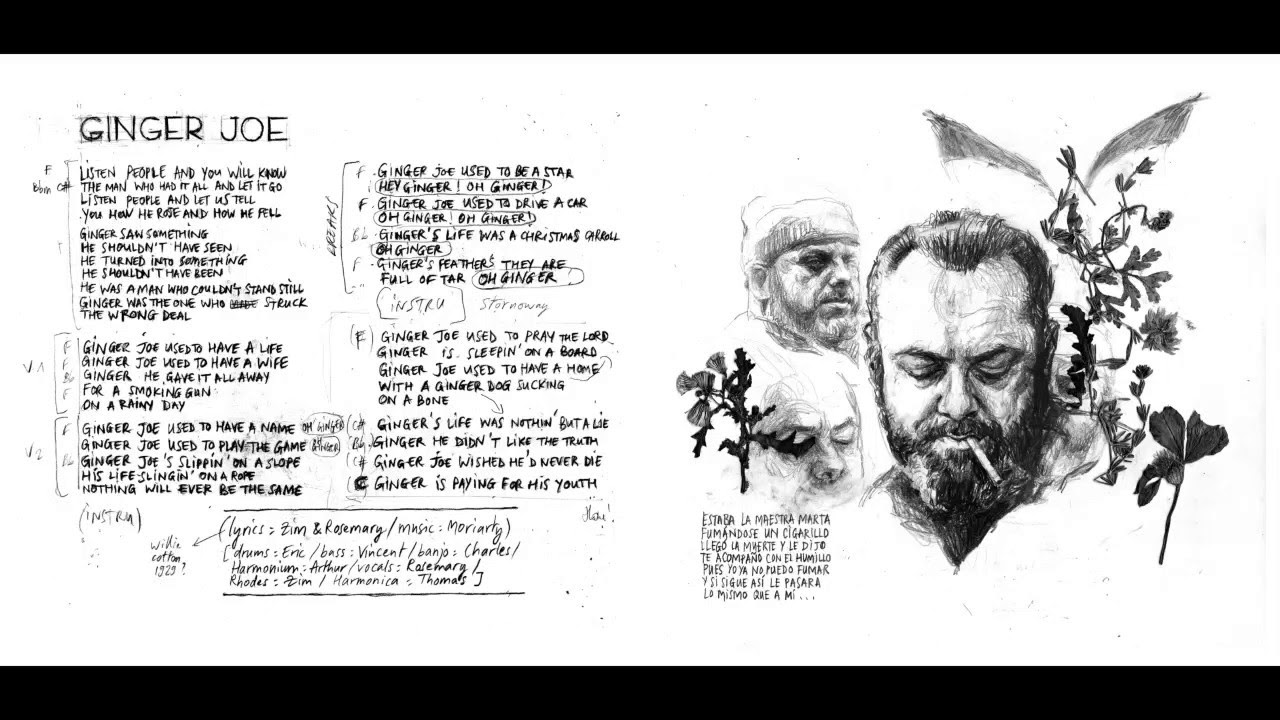 GINGER JOE
F LISTEN PEOPLE AND YOU WILL KNOW
Bbm C# THE MAN WHO HAD IT ALL AND LET IT GO
LISTEN PEOPLE AND LET US TELL
YOU HOW HE ROSE AND HOW HE FELL
GINGER SAW SOMETHING
HE SHOULDN'T HAVE SEEN
HE TURNED INTO SOMETHING
HE SHOULDN'T HAVE BEEN
HE WAS A MAN WHO COULDN'T STAND STILL
GINGER WAS THE ONE WHO STRUCK
THE WRONG DEAL
V1
F GINGER JOE USED TO HAVE A LIFE
F GINGER JOE USED TO HAVE A WIFE
Bb GINGER HE GAVE IT ALL AWAY
F FOR A SMOKING GUN
ON A RAINY DAY
V2
F GINGER JOE USED TO HAVE A NAME OH GINGER
GINGER JOE USED TO PLAY THE GAME GINGER
Bb GINGER JOE'S SLIPPIN' ON A SLOPE
HIS LIFE SLINGIN' ON A ROPE
NOTHING WILL EVER BE THE SAME
(INSTRU)
BREAKS
F - GINGER JOE USED TO BE A STAR
HEY GINGER! OH GINGER!
F - GINGER JOE USED TO DRIVE A CAR
OH GINGER! OH GINGER!
Bb - GINGER'S LIFE WAS A CHRISTMAS CARROLL
OH GINGER
F - GINGER'S FEATHERS THEY ARE
FULL OF TAR OH GINGER
(INSTRU) Stornoway
(F) GINGER JOE USED TO PRAY THE LORD
GINGER IS SLEEPIN' ON A BOARD
GINGER JOE USED TO HAVE A HOME
WITH A GINGER DOG SUCKING
ON A BONE
(C# GINGER'S LIFE WAS NOTHIN' BUT A LIE
(Bb GINGER HE DIDN'T LIKE THE TRUTH
(C# GINGER JOE WISHED HE'D NEVER DIE
(C GINGER IS PAYING FOR HIS YOUTH
Willie
cotton
1929?
(lyrics = Zim & Rosemary / music : Moriarty)
[drums : Eric / bass : Vincent / banjo = Charles /
Harmonium = Arthur / vocals = Rosemary /
Rhodes = Zim / Harmonica = Thomas]
ESTABA LA MAESTRA MARTA
FUMÁNDOSE UN CIGARILLO
LLEGÓ LA MUERTE Y LE DIJO
TE ACOMPAÑO CON EL HUMILLO
PUES YO YA NO PUEDO FUMAR
Y SI SIGUE ASÍ LE PASARA
LO MISMO QUE A MI...